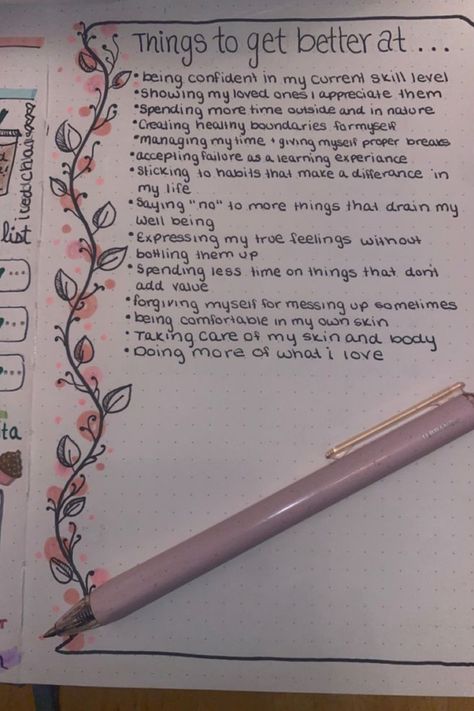 Things to get better at ...
• being confident in my current skill level
• Showing my loved ones I appreciate them
• Spending more time outside and in nature
• Creating healthy boundaries for myself
• managing my time + giving myself proper breaks
• accepting failure as a learning experiance
• Sticking to habits that make a differance in
my life
• Saying "no" to more things that drain my
well being
• Expressing my true feelings without
bottling them up
• Spending less time on things that don't
add value
• forgiving myself for messing up sometimes
• being comfortable in my own skin
• Taking care of my skin and body
• Doing more of what i love
list
ita